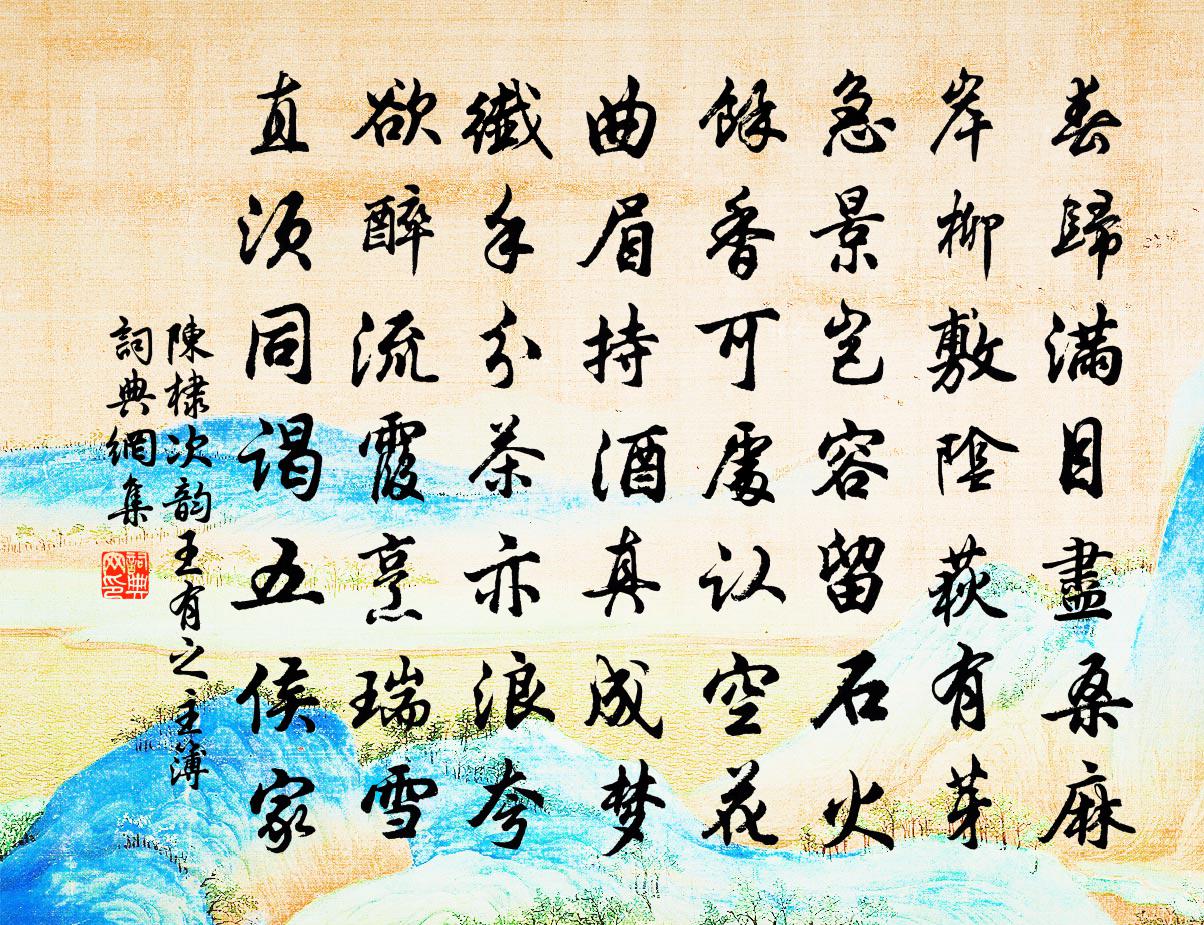 春歸滿目盡桑麻
岸柳敷陰荻有芽
急景豈容留石火
餘香可處认空花
曲眉持酒真成梦
纖手分茶亦浪夸
欲醉流霞烹瑞雪
直须同谒五侯家
陳棣次韵王有之主簿
詞典網集
詞典网印